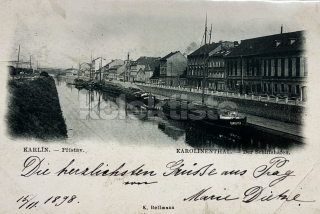 KARLÍN. - Přístav.
KAROLINENTHAL. - Der Schiffshafen.
Die herzlichsten Grüsse aus Prag
von
15/11 1898. Marie Dietze
K. Bellmann